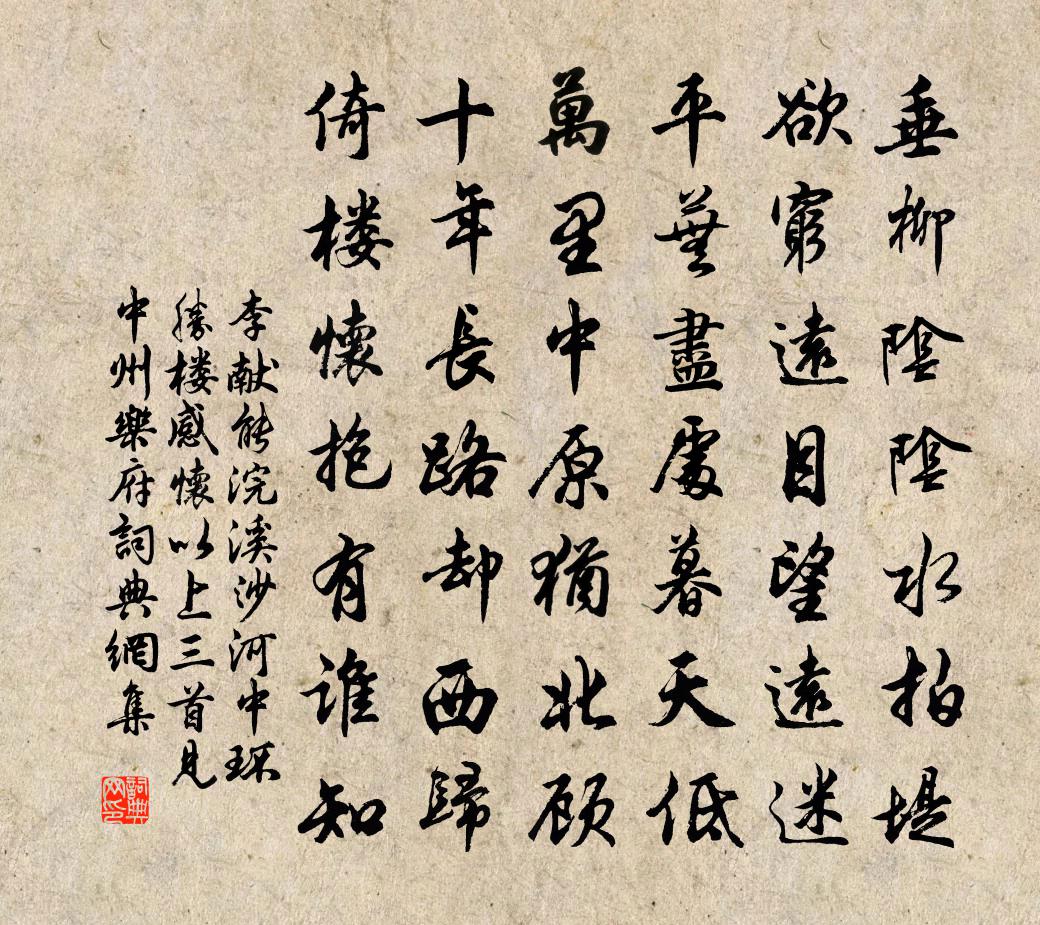 垂柳陰陰水拍堤
欲窮遠目望遠迷
平蕪盡處暮天低
萬里中原猶北顾
十年長路却西歸
倚楼懷抱有誰知
李献能浣溪沙河中環
勝楼感懷以上三首見
中州樂府詞典網集
詞典网印